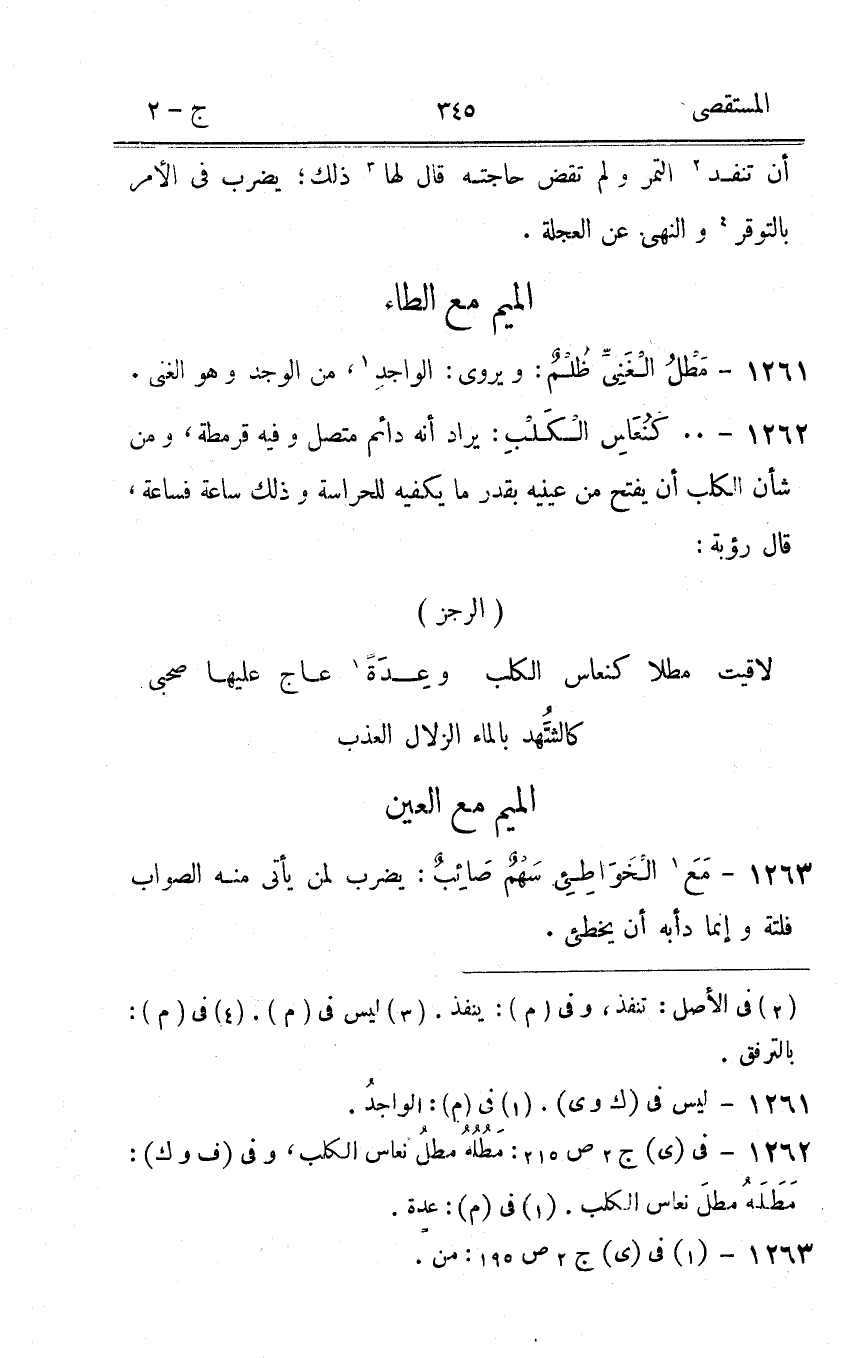 المستقصى ٣٤٥ ج – ٢
أن تنفـد ٢ التمر و لم تقض حاجتـه قال لها ٣ ذلك؛ يضرب فى الأمر
بالتوقر ٤ و النهى عن العجلة .
الميم مع الطاء
١٢٦١ – مَطْلُ الْغَنِىِّ ظُلْمٌ: و يروى: الواجدِ ١، من الوجد و هو الغنى .
١٢٦٢ – .. كَنُعَاسِ الْكَلْبِ: يراد أنه دائم متصل و فيه قرمطة، و من
شأن الكلب أن يفتح من عينيه بقدر ما يكفيه للحراسة و ذلك ساعة فساعة،
قال رؤبة :
( الرجز )
لاقيت مطلا كنعاس الكلب وعِـدَةً ١ عـاج عليهـا صحبى
كالشُّهد بالماء الزلال العذب
الميم مع العين
١٢٦٣ – مَعَ ١ الْخَوَاطِئِ سَهْمٌ صَائِبٌ: يضرب لمن يأتى منـه الصواب
فلتة و إنما دأبه أن يخطئ .
(٢) فى الأصل: تنفذ، و فى (م): ينفذ . (٣) ليس فى (م) . (٤) فى (م):
بالترفق .
١٢٦١ – ليس فى (ك وى) . (١) فى (م): الواجدُ .
١٢٦٢ – فى (ى) ج ٢ ص ٢١٥: مَطْلُهُ مطلُ نعاس الكلب، و فى (ف و ك):
مَطَلَهُ مطلَ نعاس الكلب . (١) فى (م): عدة .
١٢٦٣ – (١) فى (ى) ج ٢ ص ١٩٥: من .